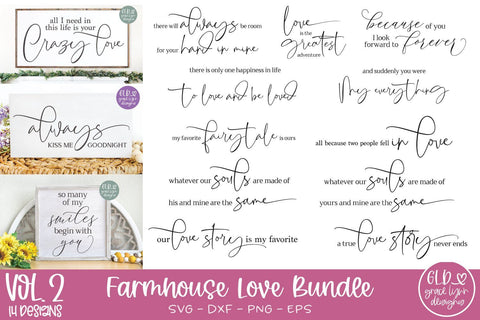 all I need in
this life is your
Crazy love
GLD
always
KISS ME GOODNIGHT
so many
of my
smiles
begin with
you
there will always be room
for your hand in mine
love
is the
greatest
adventure
because of you
I look
forward to forever
there is only one happiness in life
to love and be loved
and suddenly you were
My everything
my favorite fairytale is ours
all because two people fell in love
whatever our souls are made of
his and mine are the same
whatever our souls are made of
yours and mine are the same
our love story is my favorite
a true love story never ends
VOL. 2
14 DESIGNS
Farmhouse Love Bundle
SVG - DXF - PNG - EPS
GLD
grace lynn
designs